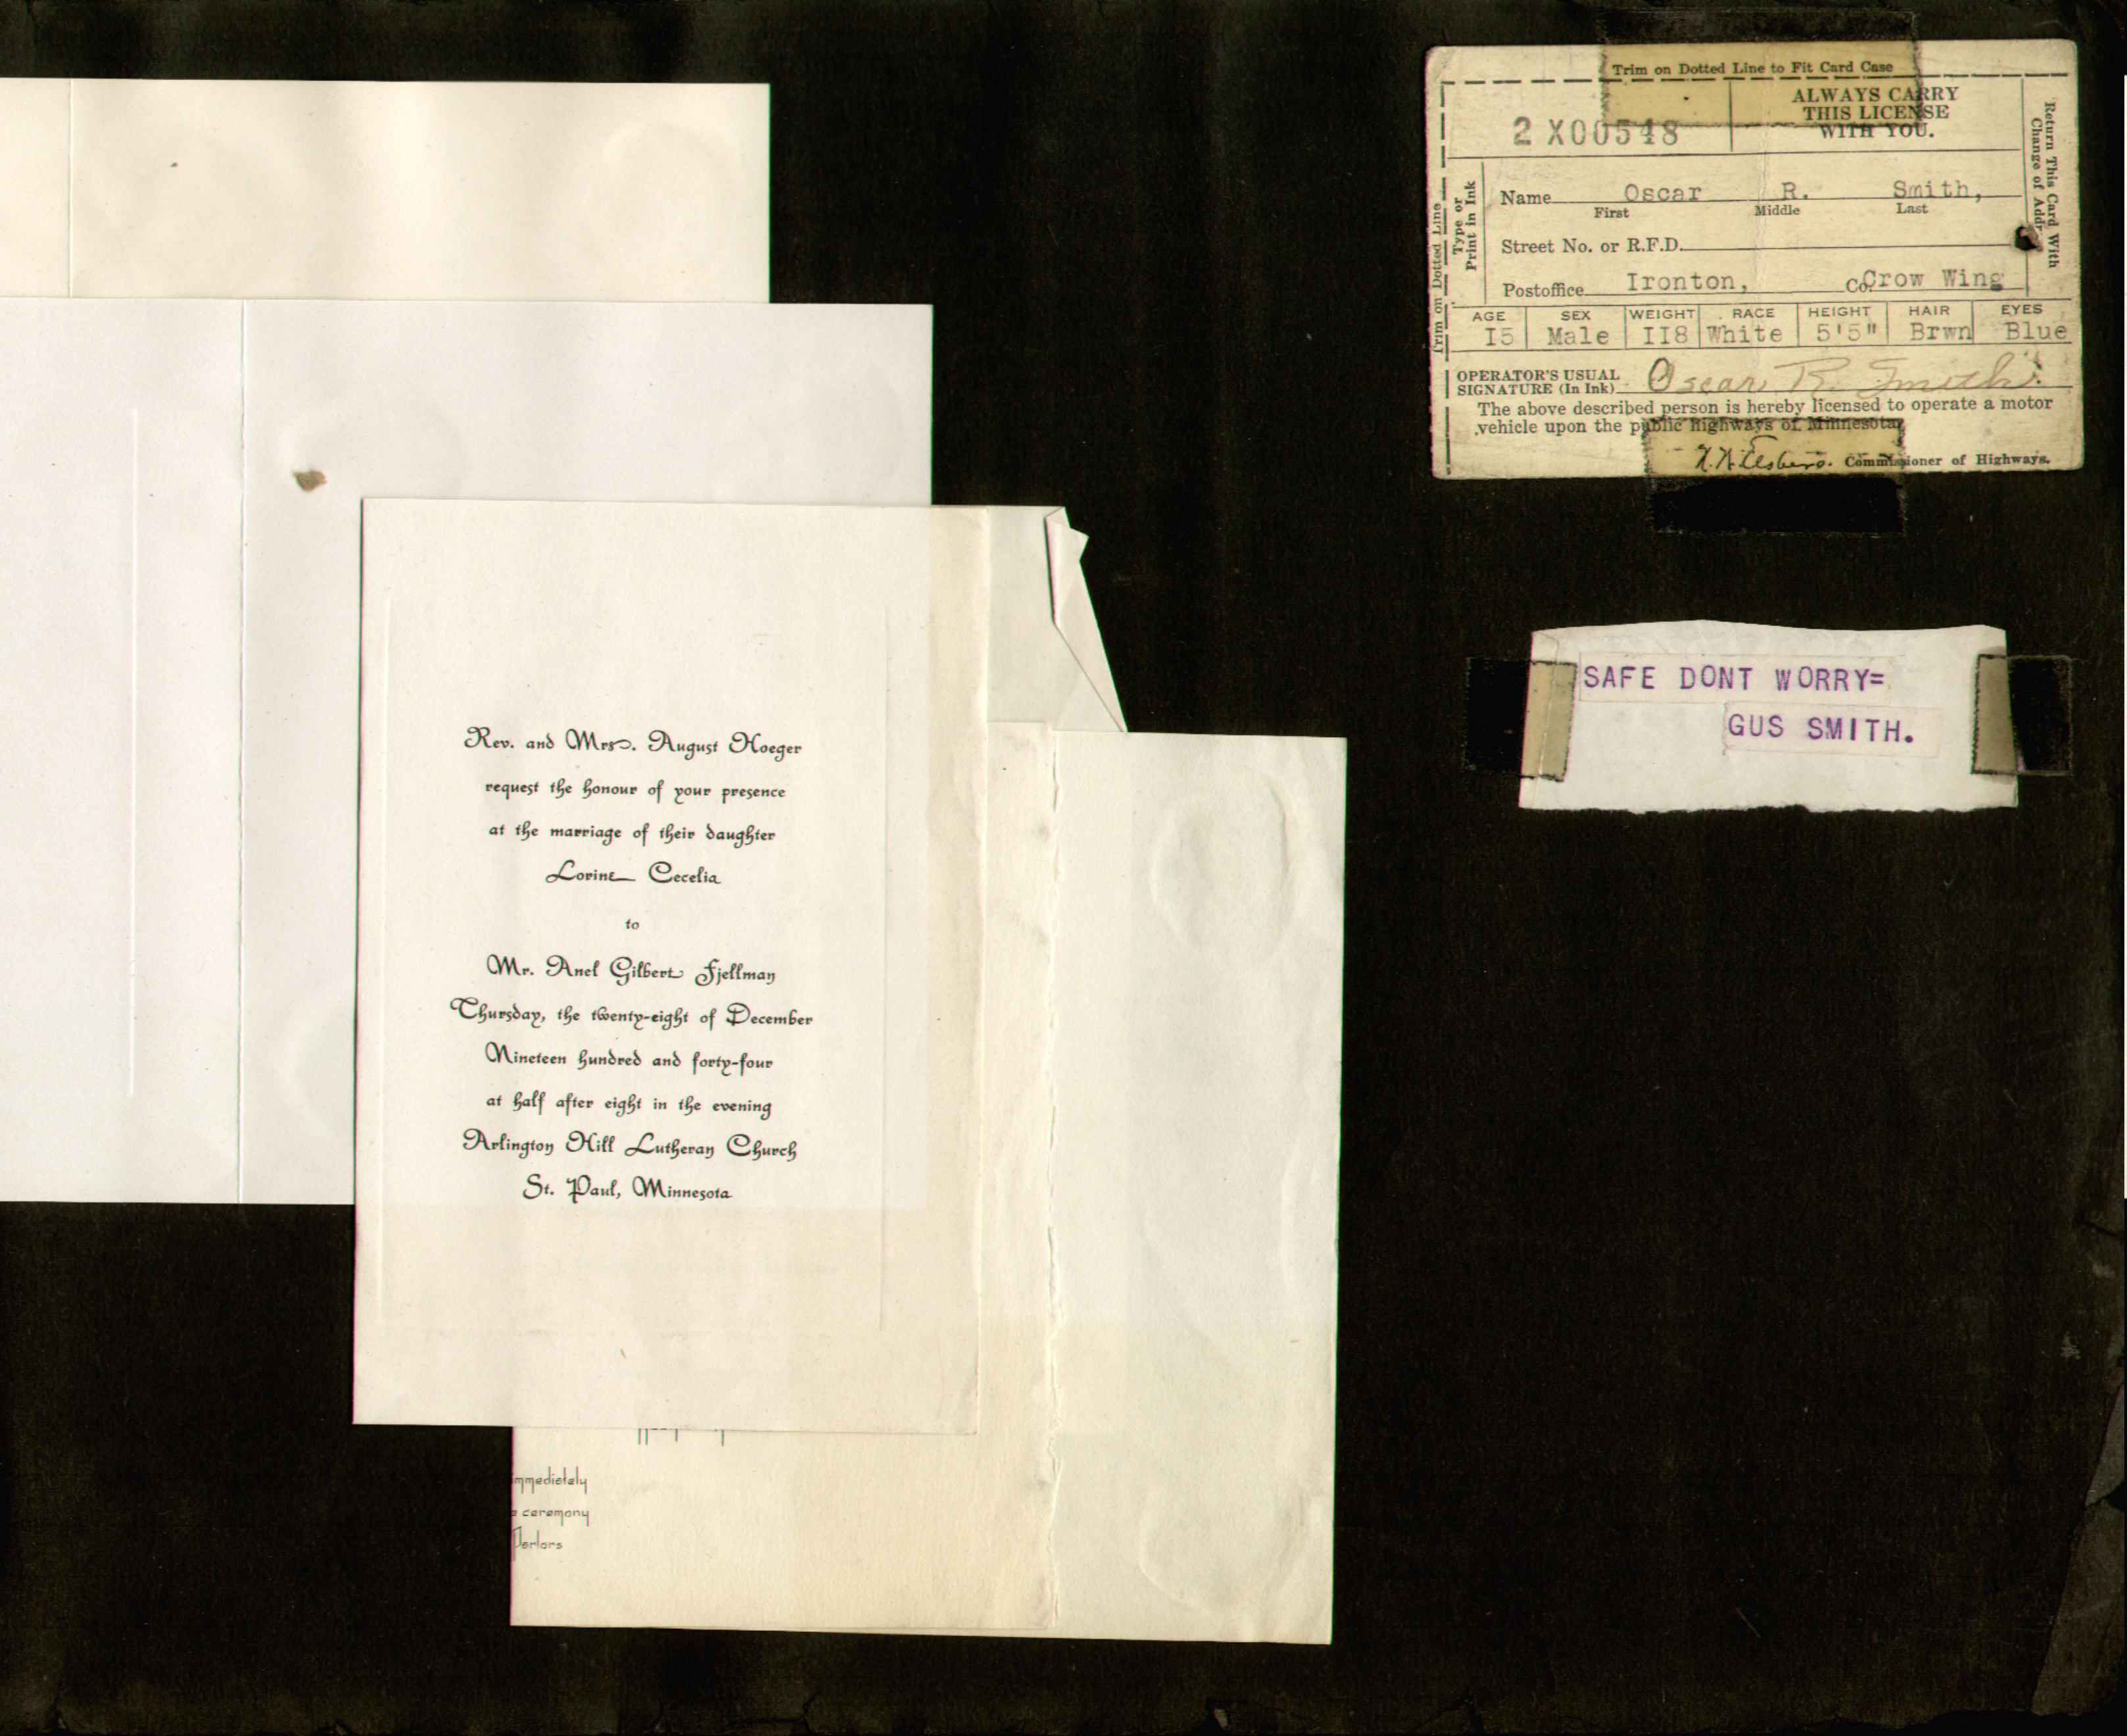 Rev. and Mrs. August Hoeger
request the honour of your presence
at the marriage of their daughter
Lorine Cecelia
to
Mr. Anel Gilbert Fjellman
Thursday, the twenty-eight of December
Nineteen hundred and forty-four
at half after eight in the evening
Arlington Hill Lutheran Church
St. Paul, Minnesota
mmediately
ceremony
Parlors
Trim on Dotted Line to Fit Card Case
2 X00548
ALWAYS CARRY
THIS LICENSE
WITH YOU.
Trim on Dotted Line
Type or
Print in Ink
Return This Card With
Change of Addr
Name Oscar R. Smith,
First Middle Last
Street No. or R.F.D.
Postoffice Ironton, Co. Crow Wing
AGE SEX WEIGHT RACE HEIGHT HAIR EYES
I5 Male II8 White 5'5" Brwn Blue
OPERATOR'S USUAL
SIGNATURE (In Ink) Oscar R. Smith
The above described person is hereby licensed to operate a motor
vehicle upon the public highways of Minnesota
Commissioner of Highways.
SAFE DONT WORRY=
GUS SMITH.